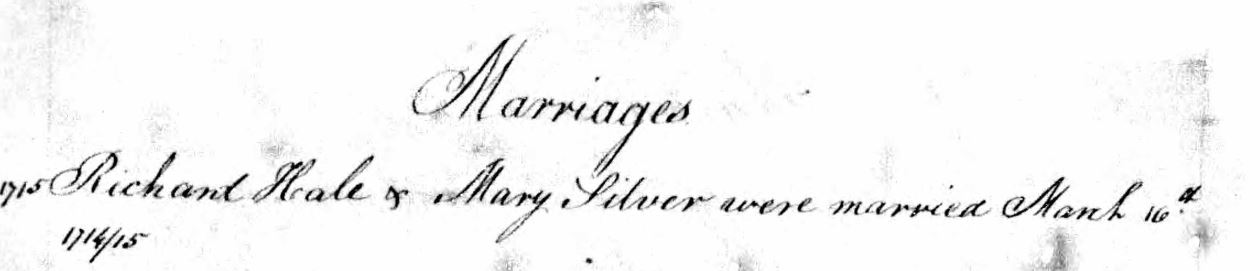 Marriages
1715 Richard Hale & Mary Silver were married March 16th
1714/15